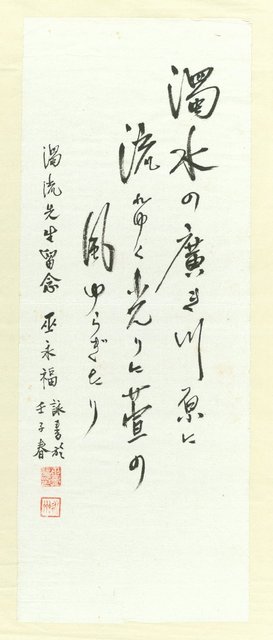 濁水の廣き川原に
流れゆく光りに萱の
風ゆらぎたり
濁流先生留念 巫永福 詠書於
壬子春